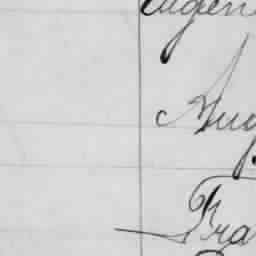 Eugen
Aug
Fra